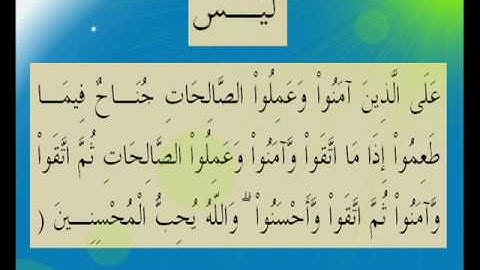 ليـــس
عَلَى الَّذِينَ آمَنُواْ وَعَمِلُواْ الصَّالِحَاتِ جُنَــاحٌ فِيمَــا
طَعِمُواْ إِذَا مَا اتَّقَواْ وَّآمَنُواْ وَعَمِلُواْ الصَّالِحَاتِ ثُمَّ اتَّقَواْ
وَّآمَنُواْ ثُمَّ اتَّقَواْ وَّأَحْسَنُواْ ۗ وَاللّهُ يُحِبُّ الْمُحْسِنِــينَ (